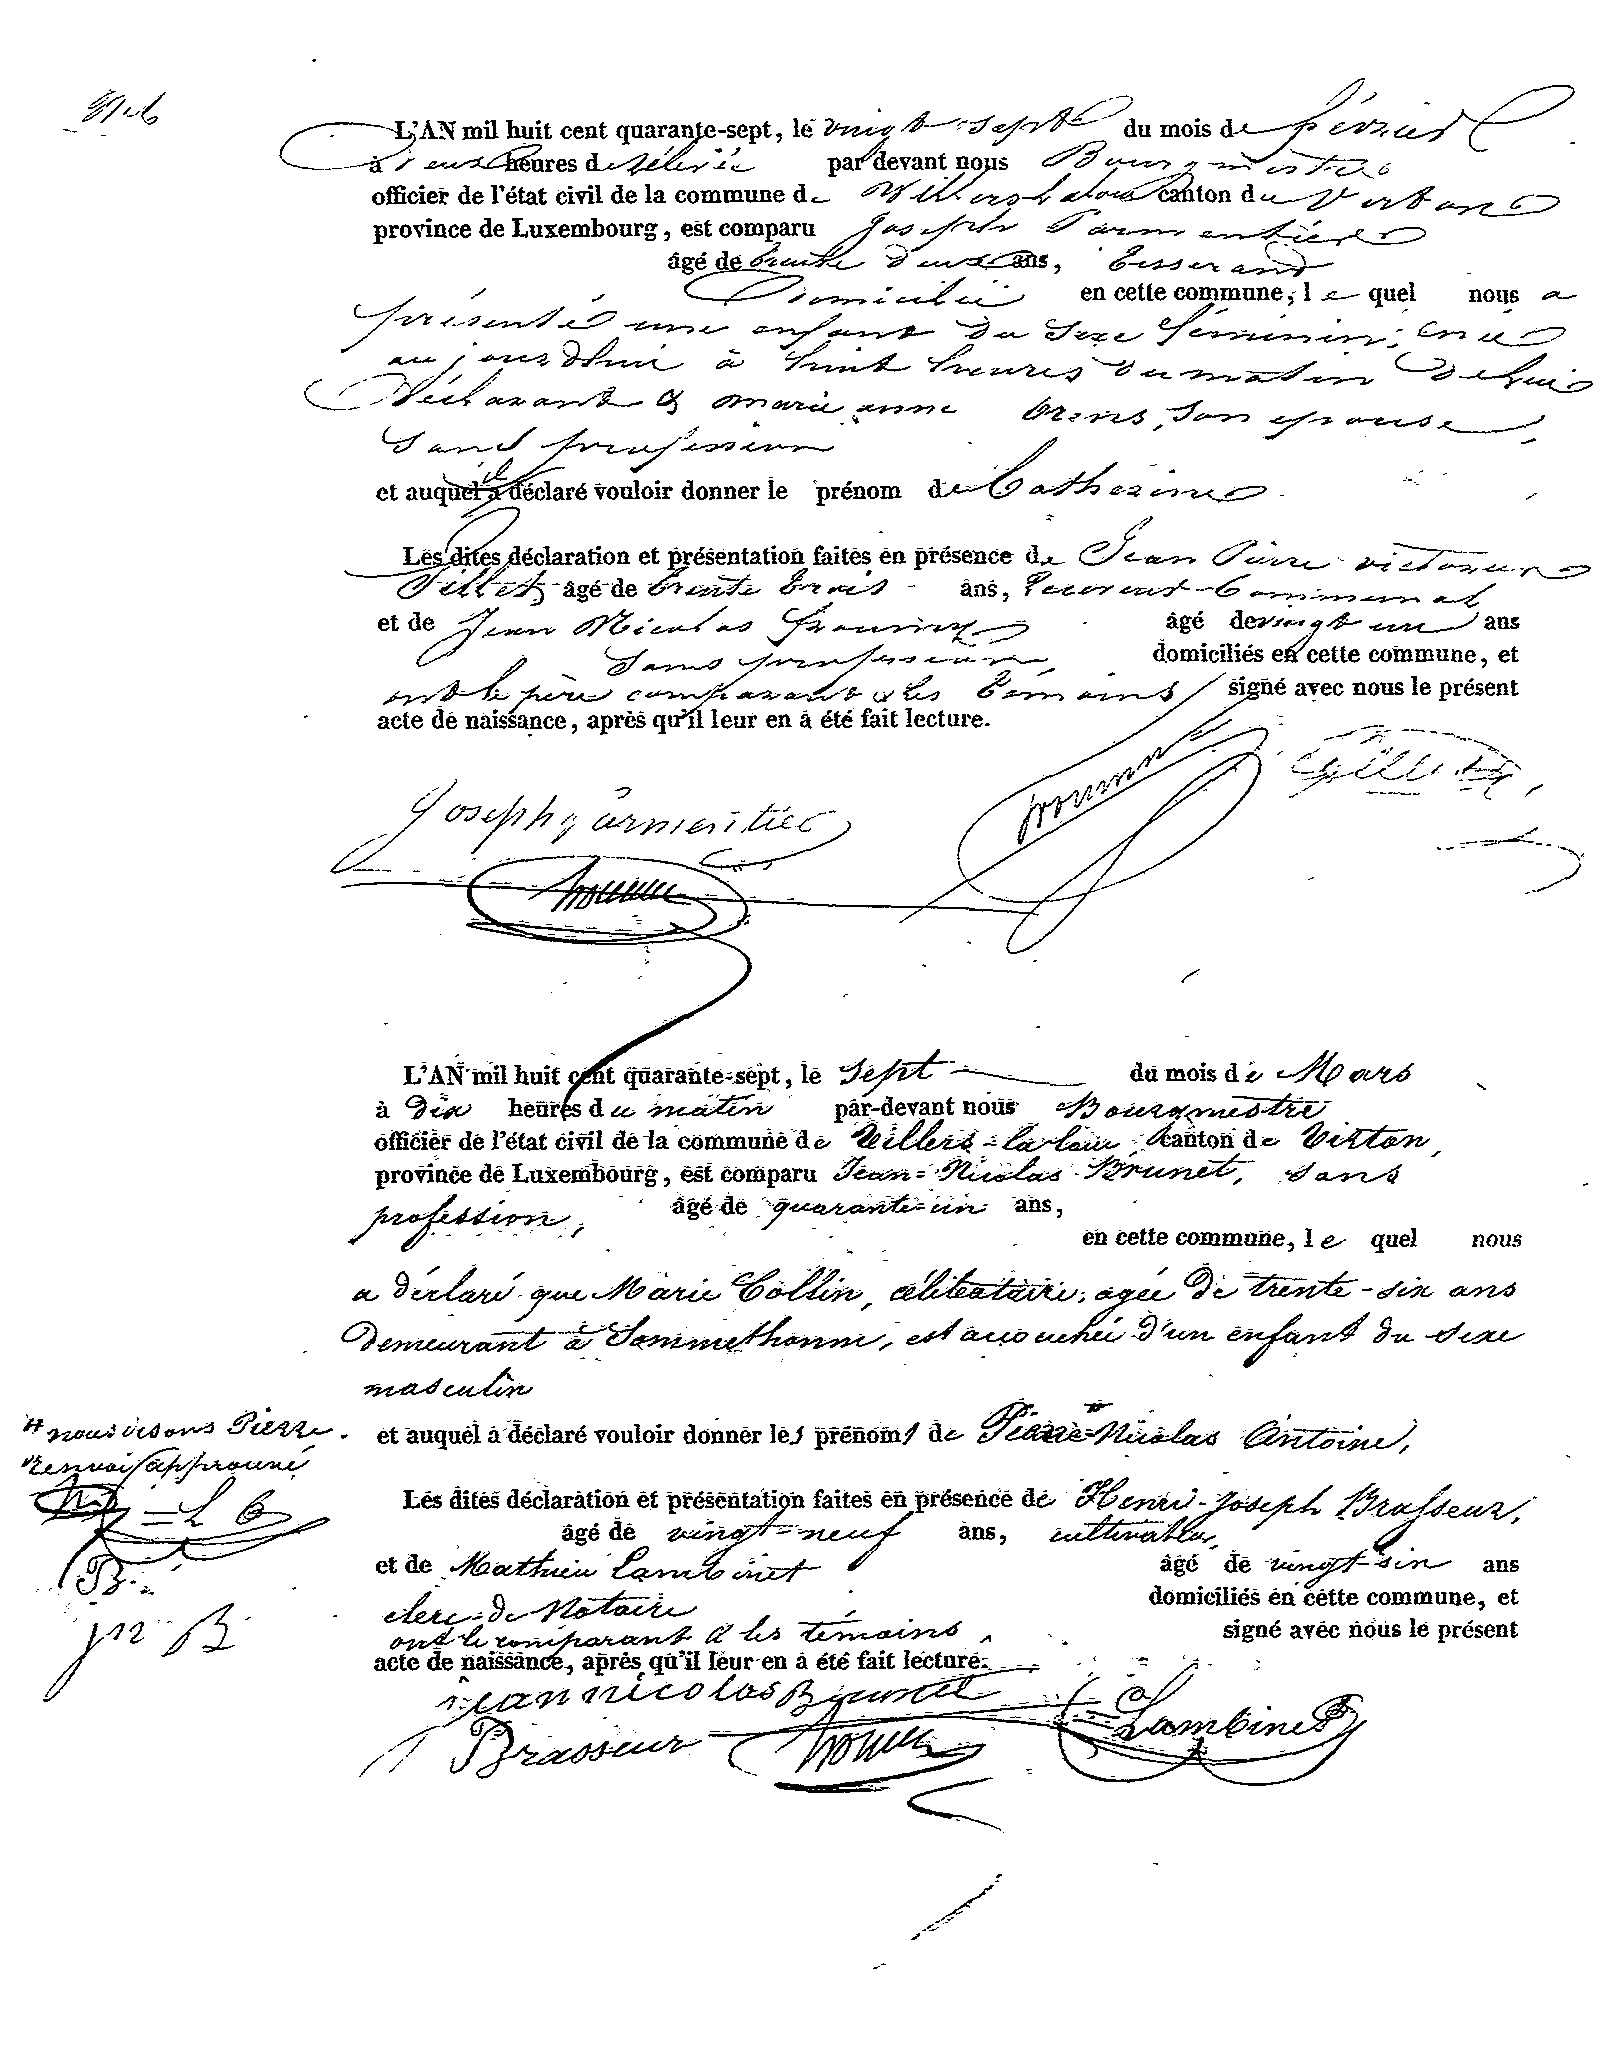 L'AN mil huit cent quarante-sept, le vingt-sept du mois de février
à deux heures de relevée par devant nous Bourgmestre
officier de l'état civil de la commune de Villers la loue canton de Virton
province de Luxembourg, est comparu Joseph Parmentier
âgé de trente deux ans, tisserand
Domicilié en cette commune, le quel nous a
présenté une enfant du sexe féminin, née
aujourdhui à huit heures du matin de lui
déclarant & marie anne son epouse,
sans profession
et auquel il a déclaré vouloir donner le prénom de Catherine
Les dites déclaration et présentation faites en présence de Jean Pierre victorien
Gillet âgé de trente trois ans, receveur communal
et de Jean Nicolas âgé de vingt un ans
sans profession domiciliés en cette commune, et
ont le père comparant & les témoins signé avec nous le présent
acte de naissance, après qu'il leur en à été fait lecture.
Joseph parmentier Gillet
L'AN mil huit cent quarante-sept, le sept du mois de Mars
à dix heures du matin par-devant nous Bourgmestre
officier de l'état civil de la commune de Villers-la-loue, canton de Virton,
province de Luxembourg, est comparu Jean-Nicolas Brunet, sans
profession, âgé de quarante-un ans,
en cette commune, le quel nous
a déclaré que Marie Collin, célibataire, agée de trente-six ans
demeurant à Sommethonne, est accouchée d'un enfant du sexe
masculin
et auquel à déclaré vouloir donner les prénoms de Pierre-Nicolas Antoine,
nous disons Pierre.
renvoi approuvé
Les dites déclaration et présentation faites en présence de Henri-Joseph Brasseur,
L C
âgé de vingt-neuf ans, cultivateur,
et de Mathieu Lambinet âgé de vingt-six ans
B.
clerc-de Notaire domiciliés en cette commune, et
ont le comparant & les témoins, signé avec nous le présent
jn B
acte de naissance, après qu'il leur en à été fait lecture.
jean nicolas Brunet
Brasseur Lambinet